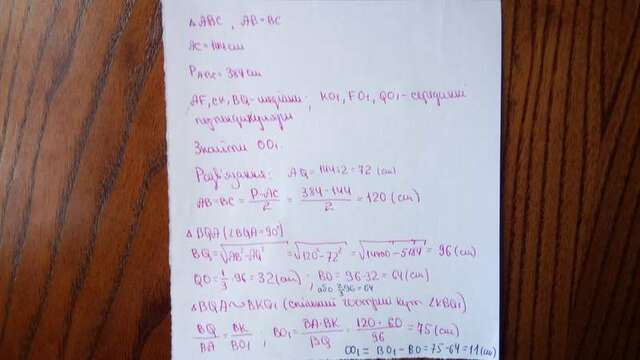 △ABC, AB=BC
AC=144 cm
P ABC = 384 cm
AF, CK, BQ - медіани; KO₁, FO₁, QO₁ - серединні
перпендикуляри
Знайти OO₁.
Розв'язання: AQ = 144:2 = 72 (cm)
AB=BC= (P-AC)/2 = (384-144)/2 = 120 (cm)
△BQA (∠BQA=90°)
BQ=√(AB²-AQ²) = √(120²-72²) = √(14400-5184) = 96 (cm)
QO=1/3·96=32 (cm); BO=96-32=64 (cm)
або 2/3·96=64
△BQA∾BKO₁ (спільний гострий кут ∠KBO₁)
BQ/BA = BK/BO₁; BO₁ = BA·BK/BQ = 120·60/96 = 75 (cm)
OO₁ = BO₁-BO=75-64=11 (cm)